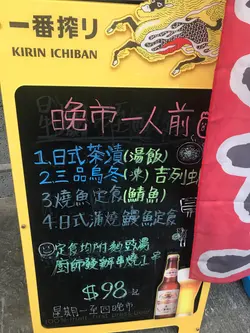 一番搾り
KIRIN ICHIBAN
晚市一人前
1.日式茶漬(湯飯)
2.三品烏冬(凍)吉列虫
3.燒魚定食(鯖魚)
4.日式蒲燒鰻魚定食
定食均附麵豉湯
廚師發辦串燒工牛
$98起
星期一至四晚市